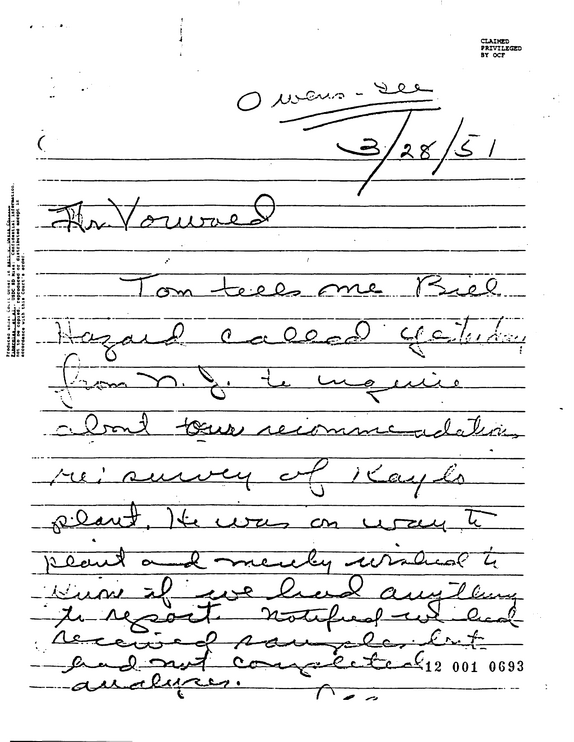 CLAIMED
PRIVILEGED
BY OCF
Owens-Ill
3/28/51
Dr. Vorwald
Tom tells me Bill
Hazard called yesterday
from N.J. to inquire
about our recommendations
re: survey of Kaylo
plant. He was on way to
plant and merely wished to
know if we had anything
to report. Notified we had
received samples but
had not completed
12 001 0693
analyses.